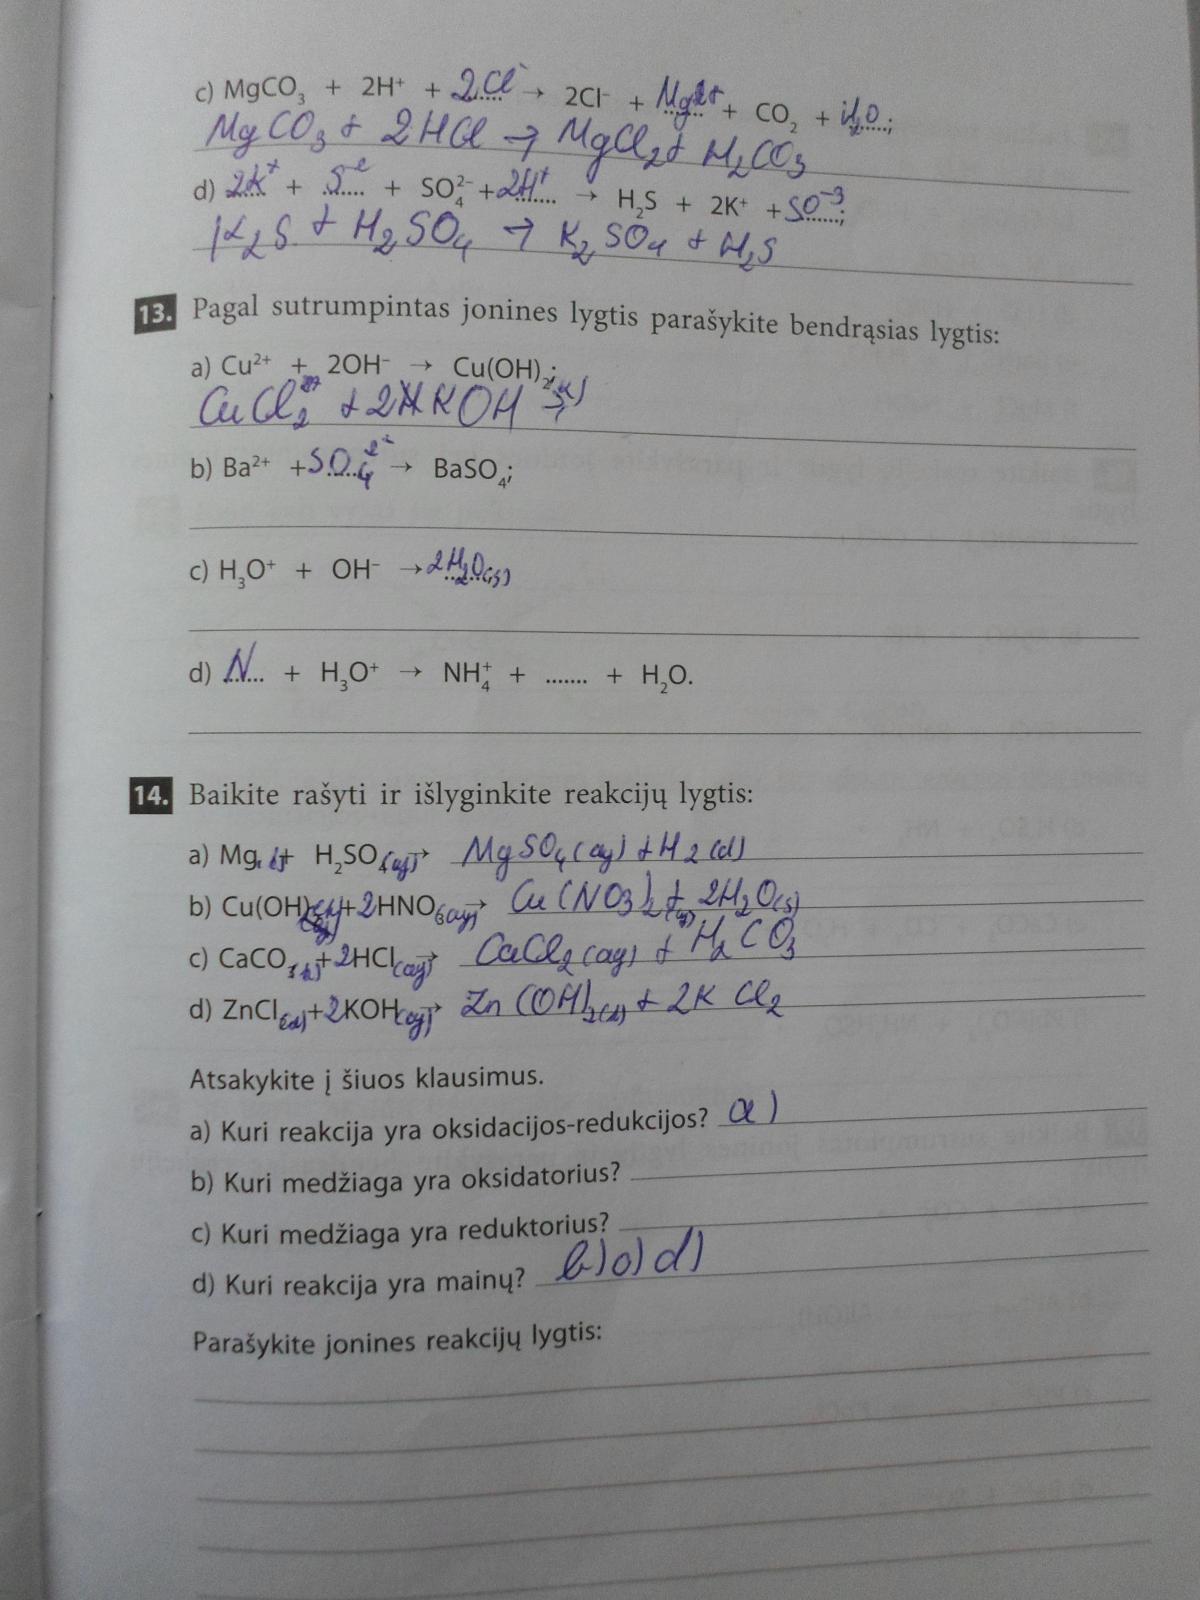 c) MgCO₃ + 2H⁺ + 2Cl⁻ → 2Cl⁻ + Mg²⁺ + CO₂ + H₂O;
MgCO₃ + 2HCl → MgCl₂ + H₂CO₃
d) 2K⁺ + S⁻² + SO₄²⁻ + 2H⁺ → H₂S + 2K⁺ + SO⁻³;
K₂S + H₂SO₄ → K₂SO₄ + H₂S
13. Pagal sutrumpintas jonines lygtis parašykite bendrąsias lygtis:
a) Cu²⁺ + 2OH⁻ → Cu(OH)₂;
CuCl₂ + 2KOH →
b) Ba²⁺ + SO₄²⁻ → BaSO₄;
c) H₃O⁺ + OH⁻ → 2H₂O(s)
d) N... + H₃O⁺ → NH₄⁺ + ....... + H₂O.
14. Baikite rašyti ir išlyginkite reakcijų lygtis:
a) Mg + H₂SO₄(aq) → MgSO₄(aq) + H₂(d)
b) Cu(OH)₂ + 2HNO₃(aq) → Cu(NO₃)₂(aq) + 2H₂O(s)
c) CaCO₃(k) + 2HCl(aq) → CaCl₂(aq) + H₂CO₃
d) ZnCl₂(d) + 2KOH(aq) → Zn(OH)₂(d) + 2KCl₂
Atsakykite į šiuos klausimus.
a) Kuri reakcija yra oksidacijos-redukcijos? a)
b) Kuri medžiaga yra oksidatorius?
c) Kuri medžiaga yra reduktorius?
d) Kuri reakcija yra mainų? b) c) d)
Parašykite jonines reakcijų lygtis: